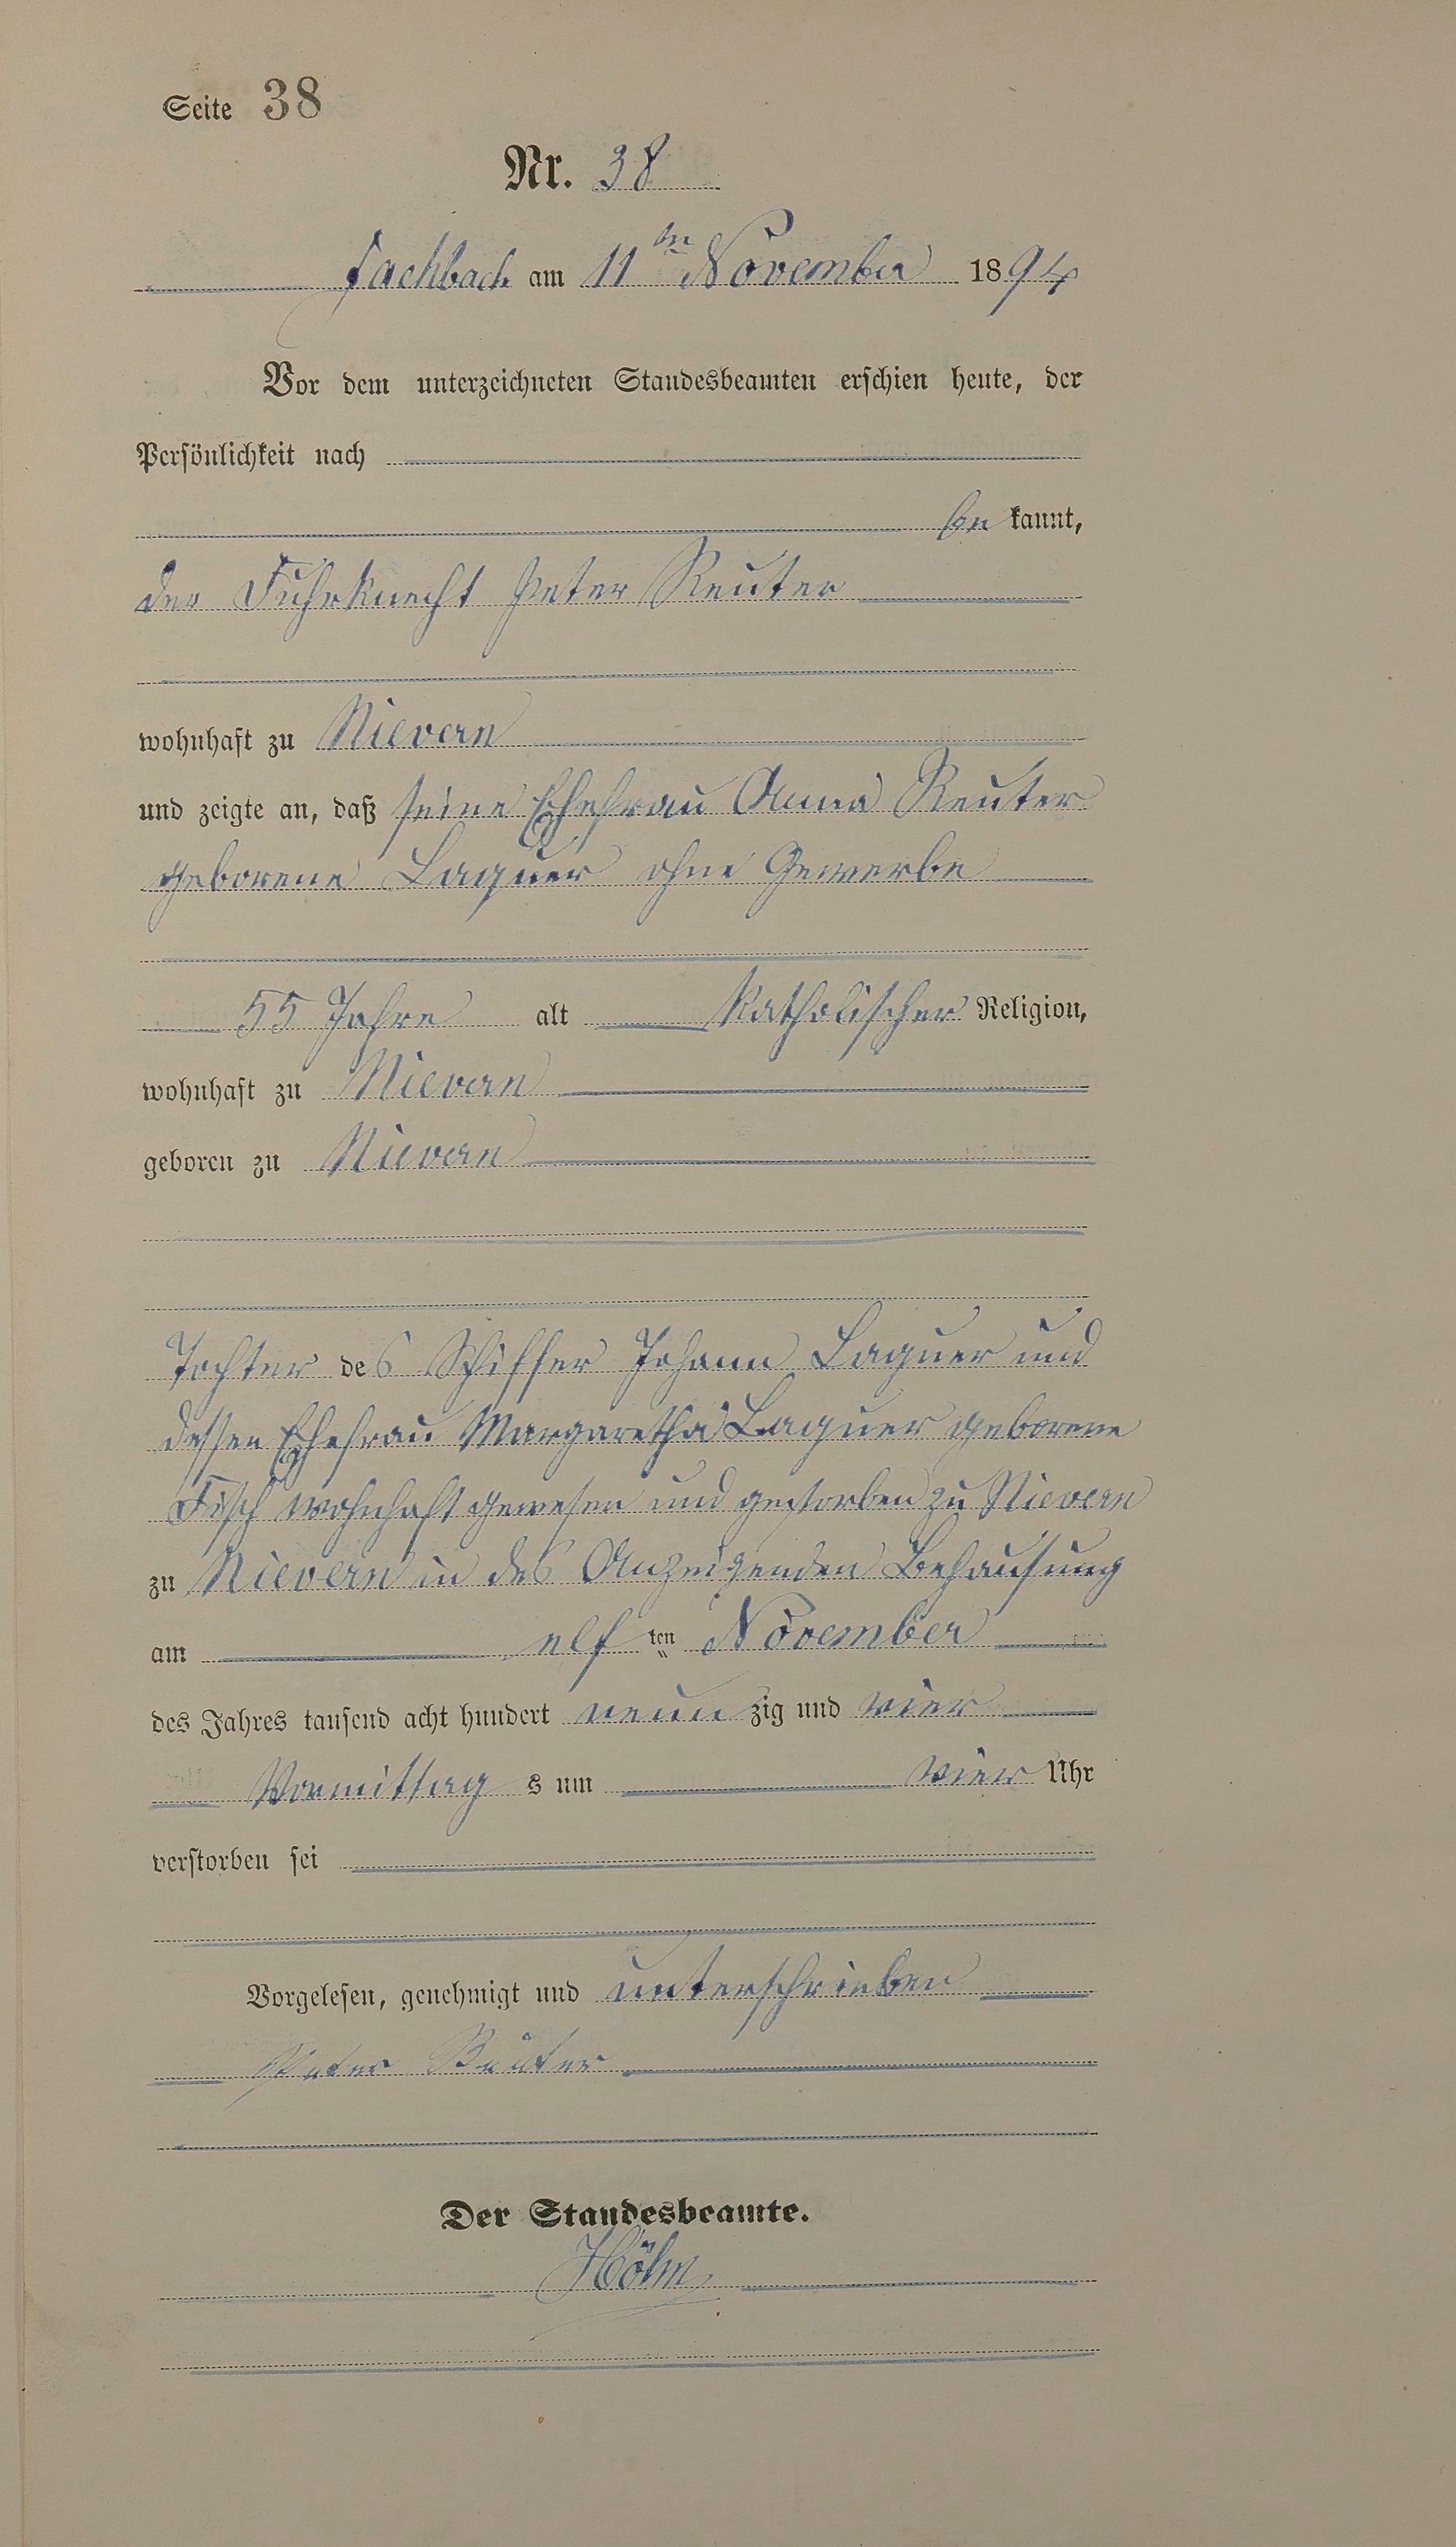 Seite 38
Nr. 38
Fachbach am 11ten November 1894
Vor dem unterzeichneten Standesbeamten erschien heute, der
Persönlichkeit nach
bekannt,
der Fuhrknecht Peter Reuter
wohnhaft zu Nievern
und zeigte an, daß seine Ehefrau Anna Reuter
geborene Laquer ohne Gewerbe
55 Jahre alt katholischer Religion,
wohnhaft zu Nievern
geboren zu Nievern
Tochter des Schiffer Johann Laquer und
dessen Ehefrau Margaretha Laquer geborene
Fisch wohnhaft gewesen und gestorben zu Nievern
zu Nievern in des Anzeigenden Behausung
am elften November
des Jahres tausend acht hundert neunzig und vier
Vormittags um vier Uhr
verstorben sei
Vorgelesen, genehmigt und unterschrieben
Peter Reuter
Der Standesbeamte.
Höhn